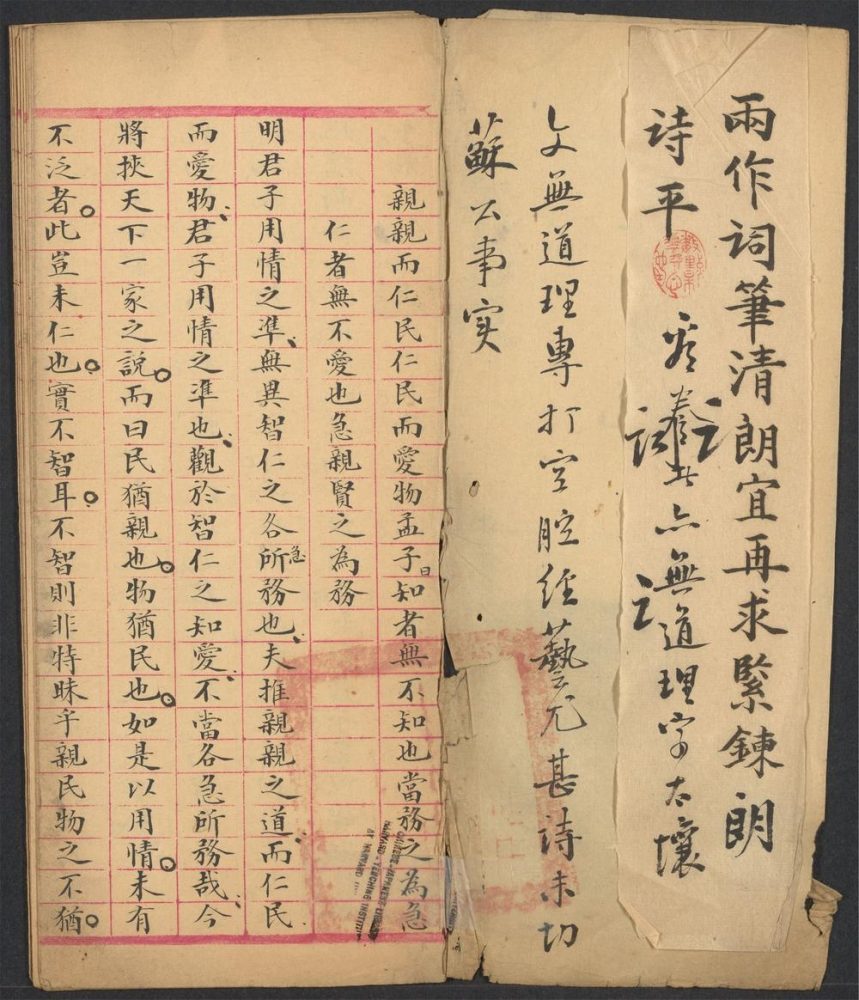 兩作詞筆清朗宜再求緊鍊朗
詩平
亦無道理字太壞
文無道理專打空腔經藝尤甚詩未切
蘇公事实
親親而仁民仁民而愛物孟子曰知者無不知也當務之為急
仁者無不愛也急親賢之為務
明君子用情之準無異智仁之各所急務也夫推親親之道而仁民
而愛物君子用情之準也觀於智仁之知愛不當各急所務哉今
將挾天下一家之說而曰民猶親也物猶民也如是以用情未有
不泛者此豈未仁也實不智耳不智則非特昧乎親民物之不猶